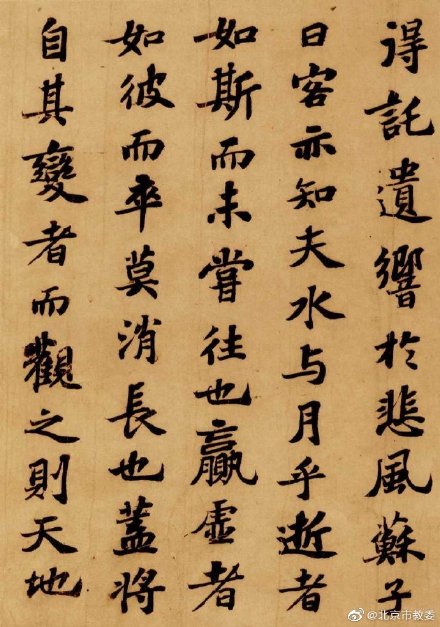 得託遺響於悲風蘇子
曰客亦知夫水与月乎逝者
如斯而未嘗往也贏虛者
如彼而卒莫消長也蓋將
自其變者而觀之則天地
@北京市教委